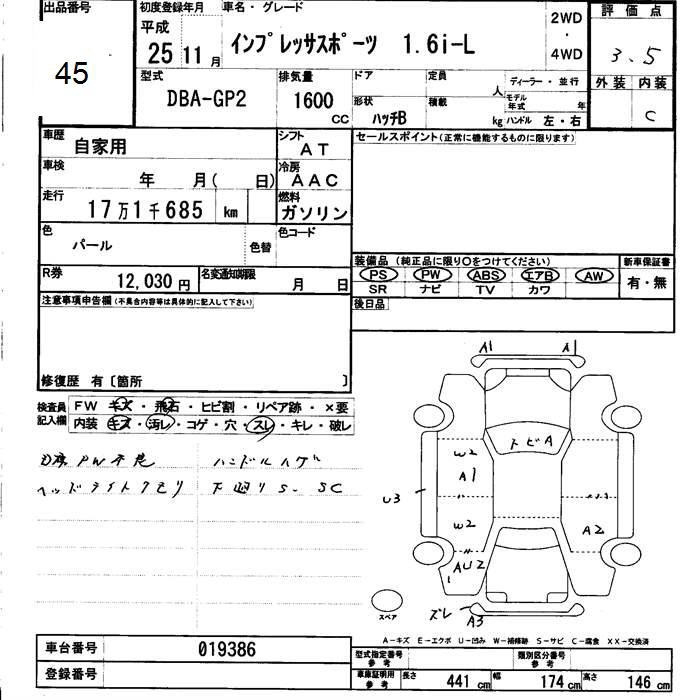 出品番号
45
初度登録年月
平成
25 11 月
車名・グレード
インプレッサスポーツ 1.6i-L
2WD
・
4WD
評価点
3.5
外装 内装
C
型式
DBA-GP2
排気量
1600
CC
ドア
形状
ハッチB
定員
人
積載
kg
ディーラー・並行
モデル年式 年
ハンドル 左・右
車歴
自家用
シフト
AT
車検
年 月( 日)
冷房
AAC
走行
17万1千685 km
燃料
ガソリン
色
パール
色替
色コード
R券
12,030円
名変通知期限
月 日
セールスポイント(正常に機能するものに限ります)
装備品 (純正品に限り○をつけてください)
PS PW ABS エアB AW
SR ナビ TV カワ
新車保証書
有・無
後日品
注意事項申告欄(不具合内容等は具体的に記入して下さい)
修復歴 有〔箇所 〕
検査員記入欄
FW キズ・飛石・ヒビ割・リペア跡・×要
内装 キズ・汚レ・コゲ・穴・スレ・キレ・破レ
PW ハンドルハゲ
ヘッドライトクモリ 下廻りS. SC
A1 A1
トビA
W2
A1
U3
W2
A2
AU2
ズレ A3
スペア
A-キズ E-エクボ U-凹み W-補修跡 S-サビ C-腐食 XX-交換済
車台番号 019386
登録番号
型式指定番号 参考
類別区分番号 参考
車庫証明用 参考
長さ 441 cm 幅 174 cm 高さ 146 cm